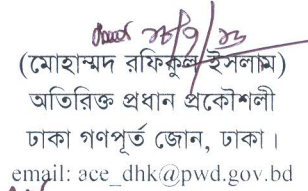 (মোহাম্মদ রফিকুল ইসলাম)
অতিরিক্ত প্রধান প্রকৌশলী
ঢাকা গণপূর্ত জোন, ঢাকা।
email: ace_dhk@pwd.gov.bd